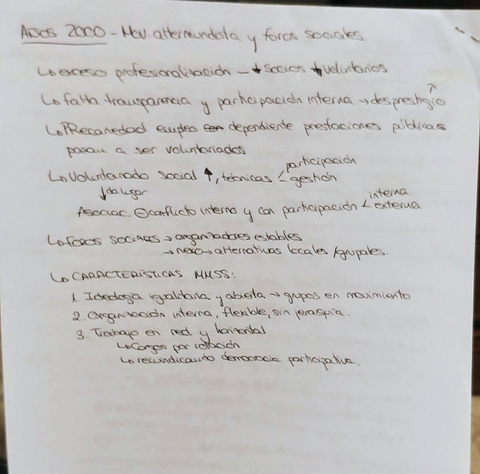 AÑOS 2000 - Mov. altermundista y foros sociales.
↳ exceso profesionalización - ↓ socios ↓ voluntarios
↳ falta transparencia y participación interna → desprestigio ↑
↳ Precariedad empleo dependiente prestaciones públicas
pasan a ser voluntariados
↳ Voluntariado social ↑, técnicas < participación
gestión
↓ da lugar
Asociac. ⊖ conflicto interno y con participación < interna
externa
↳ FOROS SOCIALES → organizadores estables
→ nexo → alternativas locales /grupales.
↳ CARACTERÍSTICAS MMSS:
1. Ideología igualitaria y abierta → grupos en movimiento
2. Organización interna, flexible, sin jerarquía.
3. Trabajo en red y horizontal
↳ Cargos por rotación
↳ reivindicando democracia participativa.